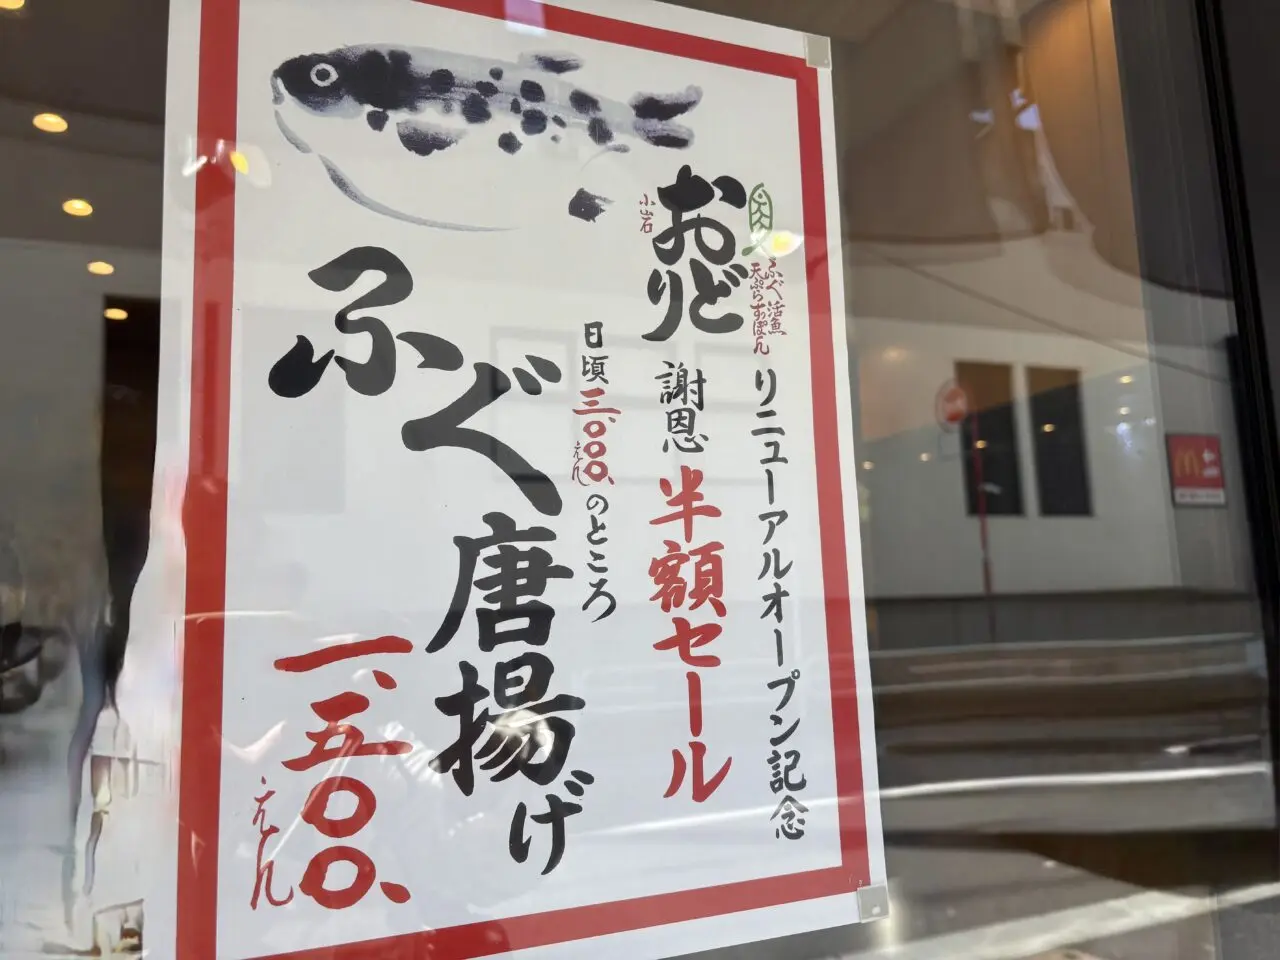 ふぐ活魚
天ぷらすっぽん
リニューアルオープン記念
小岩
おどり
謝恩半額セール
日頃三、〇〇〇、えんのところ
ふぐ唐揚げ
一、五〇〇、
えん